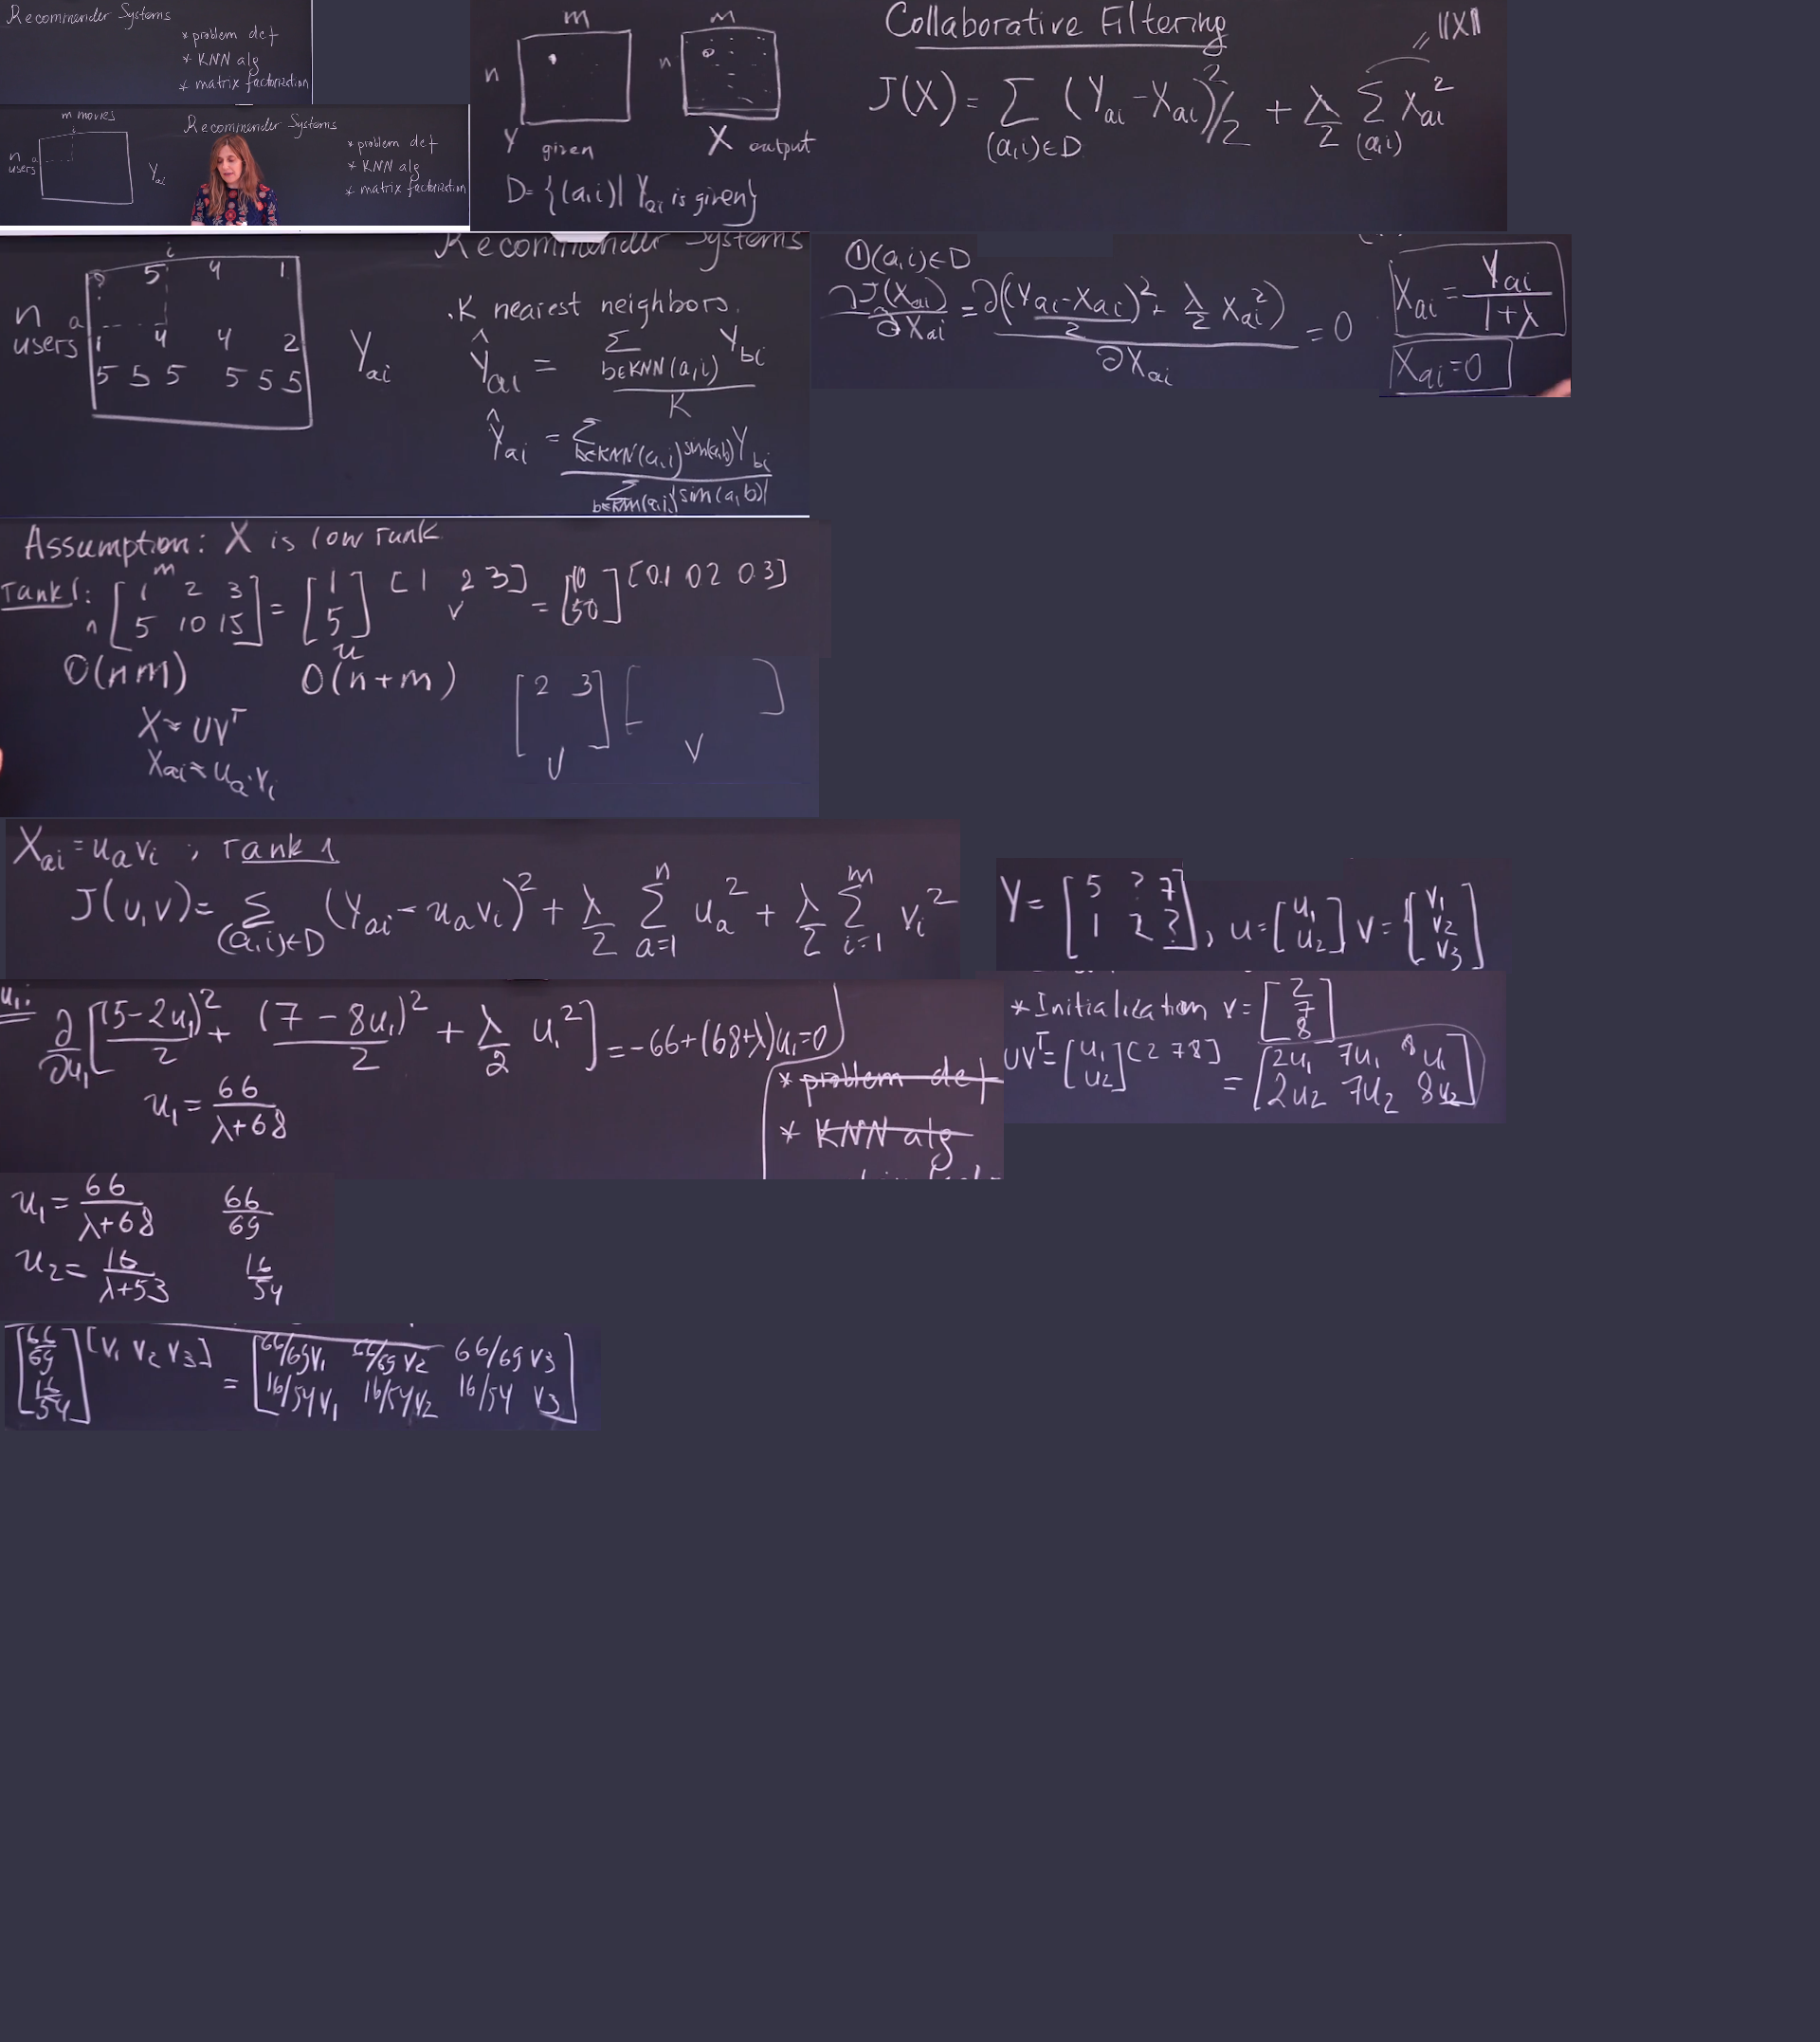 Recommender Systems
* problem def
* KNN alg
* matrix factorization
m movies
n users a
Y_ai
Recommender Systems
* problem def
* KNN alg
* matrix factorization
m
n
Y given
m
n
X output
D = {(a,i) | Y_ai is given}
Collaborative Filtering
J(X) = Σ_(a,i)∈D (Y_ai - X_ai)²/2 + λ/2 Σ_(a,i) X_ai²
||X||
i
5 4 1
n users a
1 4 4 2
5 5 5 5 5 5
Y_ai
Recommender Systems
. K nearest neighbors.
Ŷ_ai = Σ_b∈KNN(a,i) Y_bi / K
Ŷ_ai = Σ_b∈KNN(a,i) sim(a,b) Y_bi / Σ_b∈KNN(a,i) |sim(a,b)|
① (a,i) ∈ D
∂J(X_ai)/∂X_ai = ∂((Y_ai - X_ai)²/2 + λ/2 X_ai²)/∂X_ai = 0
X_ai = Y_ai/(1+λ)
X_ai = 0
Assumption: X is low rank
rank 1: n m [1 2 3; 5 10 15] = [1; 5] u [1 2 3] v = [10; 50] [0.1 0.2 0.3]
O(nm) O(n+m)
[2 3] U [ ] V
X ≈ UV^T
X_ai ≈ u_a · v_i
X_ai = u_a v_i ; rank 1
J(u,v) = Σ_(a,i)∈D (Y_ai - u_a v_i)² + λ/2 Σ_a=1^n u_a² + λ/2 Σ_i=1^m v_i²
Y = [5 ? 7; 1 2 ?], u = [u1; u2] v = [v1; v2; v3]
u1:
∂/∂u1 [(5-2u1)²/2 + (7-8u1)²/2 + λ/2 u1²] = -66 + (68+λ)u1 = 0
u1 = 66/(λ+68)
* problem def
* KNN alg
* Initialization v = [2; 7; 8]
UV^T = [u1; u2] [2 7 8] = [2u1 7u1 8u1; 2u2 7u2 8u2]
u1 = 66/(λ+68) 66/69
u2 = 16/(λ+53) 16/54
[66/69; 16/54] [v1 v2 v3] = [66/69 v1 66/69 v2 66/69 v3; 16/54 v1 16/54 v2 16/54 v3]